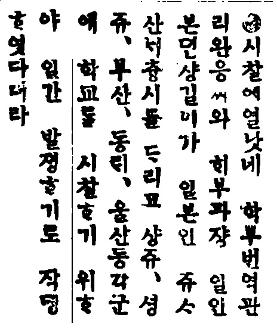 ◎시찰에열낫네 학부번역관
리완응씨와 히부과쟝 일인
본뎐샹길이가 일본인 쥬ᄉᆞ
산서츙시를 ᄃᆞ리고 샹쥬、셩
쥬、부산、동ᄅᆡ、울산등각군
에 학교들 시찰ᄒᆞ기 위ᄒᆞ
야 일간 발졍ᄒᆞ기로 작뎡
ᄒᆞ엿다더라